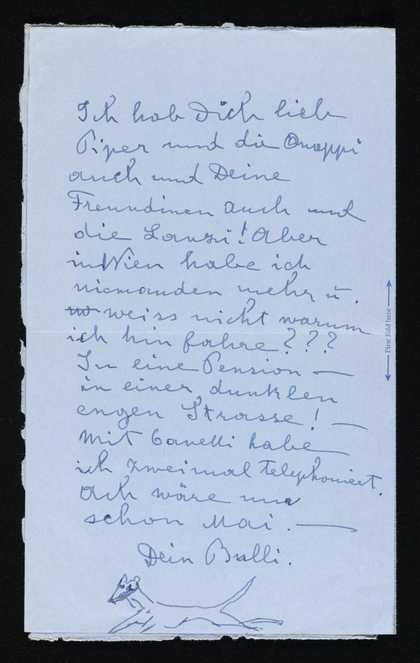 Ich hab Dich lieb
Piper und die Quappi
auch und Deine
Freundinen auch und
die Lansi! Aber
in Wien habe ich
niemanden mehr u.
weiss nicht warum
ich hin fahre???
In eine Pension —
in einer dunklen
engen Strasse! —
Mit Canetti habe
ich zweimal telephoniert.
Ach wäre nur
schon Mai. —
Dein Bulli.
First fold here